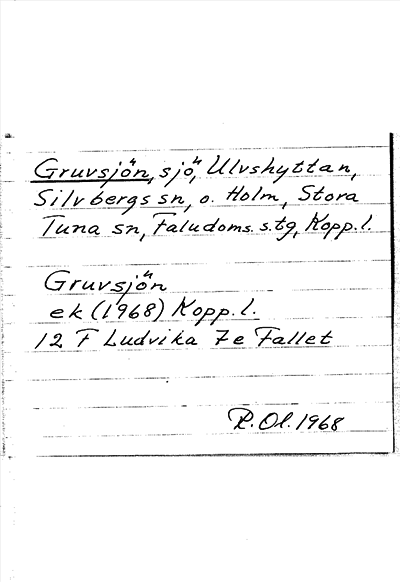 Gruvsjön, sjö, Ulvshyttan,
Silvbergs sn, o. Holm, Stora
Tuna sn, Faludoms. s.tg, Kopp.l.
Gruvsjön
ek (1968) Kopp.l.
12 F Ludvika 7e Fallet
R.Ol.1968